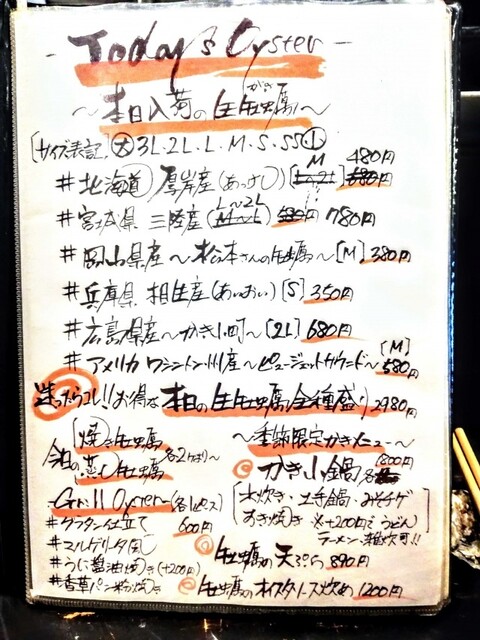 -Today's Oyster-
～本日入荷の生牡蠣～
がき
[サイズ表記 大 3L・2L・L・M・S・SS 小]
M 480円
#北海道 厚岸産(あっけし) [L~2L] 680円
L~2L
#宮城県 三陸産(M~L) 780円
#岡山県産～松本さんの牡蠣～[M] 380円
#兵庫県 相生産(あいおい) [S] 350円
#広島県産～かき小町～[2L] 680円
[M]
#アメリカ ワシントン州産～ピュージェットサウンド～ 580円
迷ったらコレ!!お得な 本日の生牡蠣全種盛り 2980円
焼き牡蠣
今日の蒸し牡蠣 各2ケ
Grill Oyster (各1ピース)
#グラタン仕立て 600円
#マルゲリータ風
#うに醤油焼き(+200円)
#香草パン粉焼き
～季節限定かきメニュー～
かき小鍋 各1800円
[水炊き・土手鍋・みそチゲ
すき焼き ※+200円でうどん
ラーメン・雑炊可!!
牡蠣の天ぷら 890円
牡蠣のオイスターソース炒め 1200円